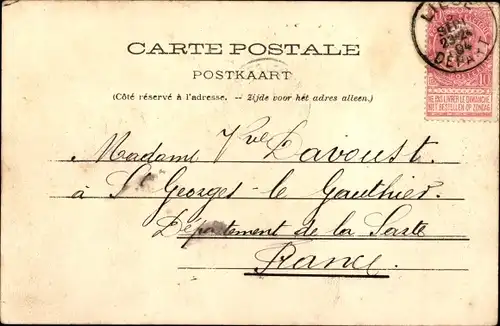 LIÉGE
23-24
04
DÉPART
CARTE POSTALE
POSTKAART
(Côté réservé à l'adresse. — Zijde voor het adres alleen.)
NE PAS LIVRER LE DIMANCHE
NIET BESTELLEN OP ZONDAG
Madame Vve Davoust
à St Georges-le Gauthier.
Département de la Sarte
France.